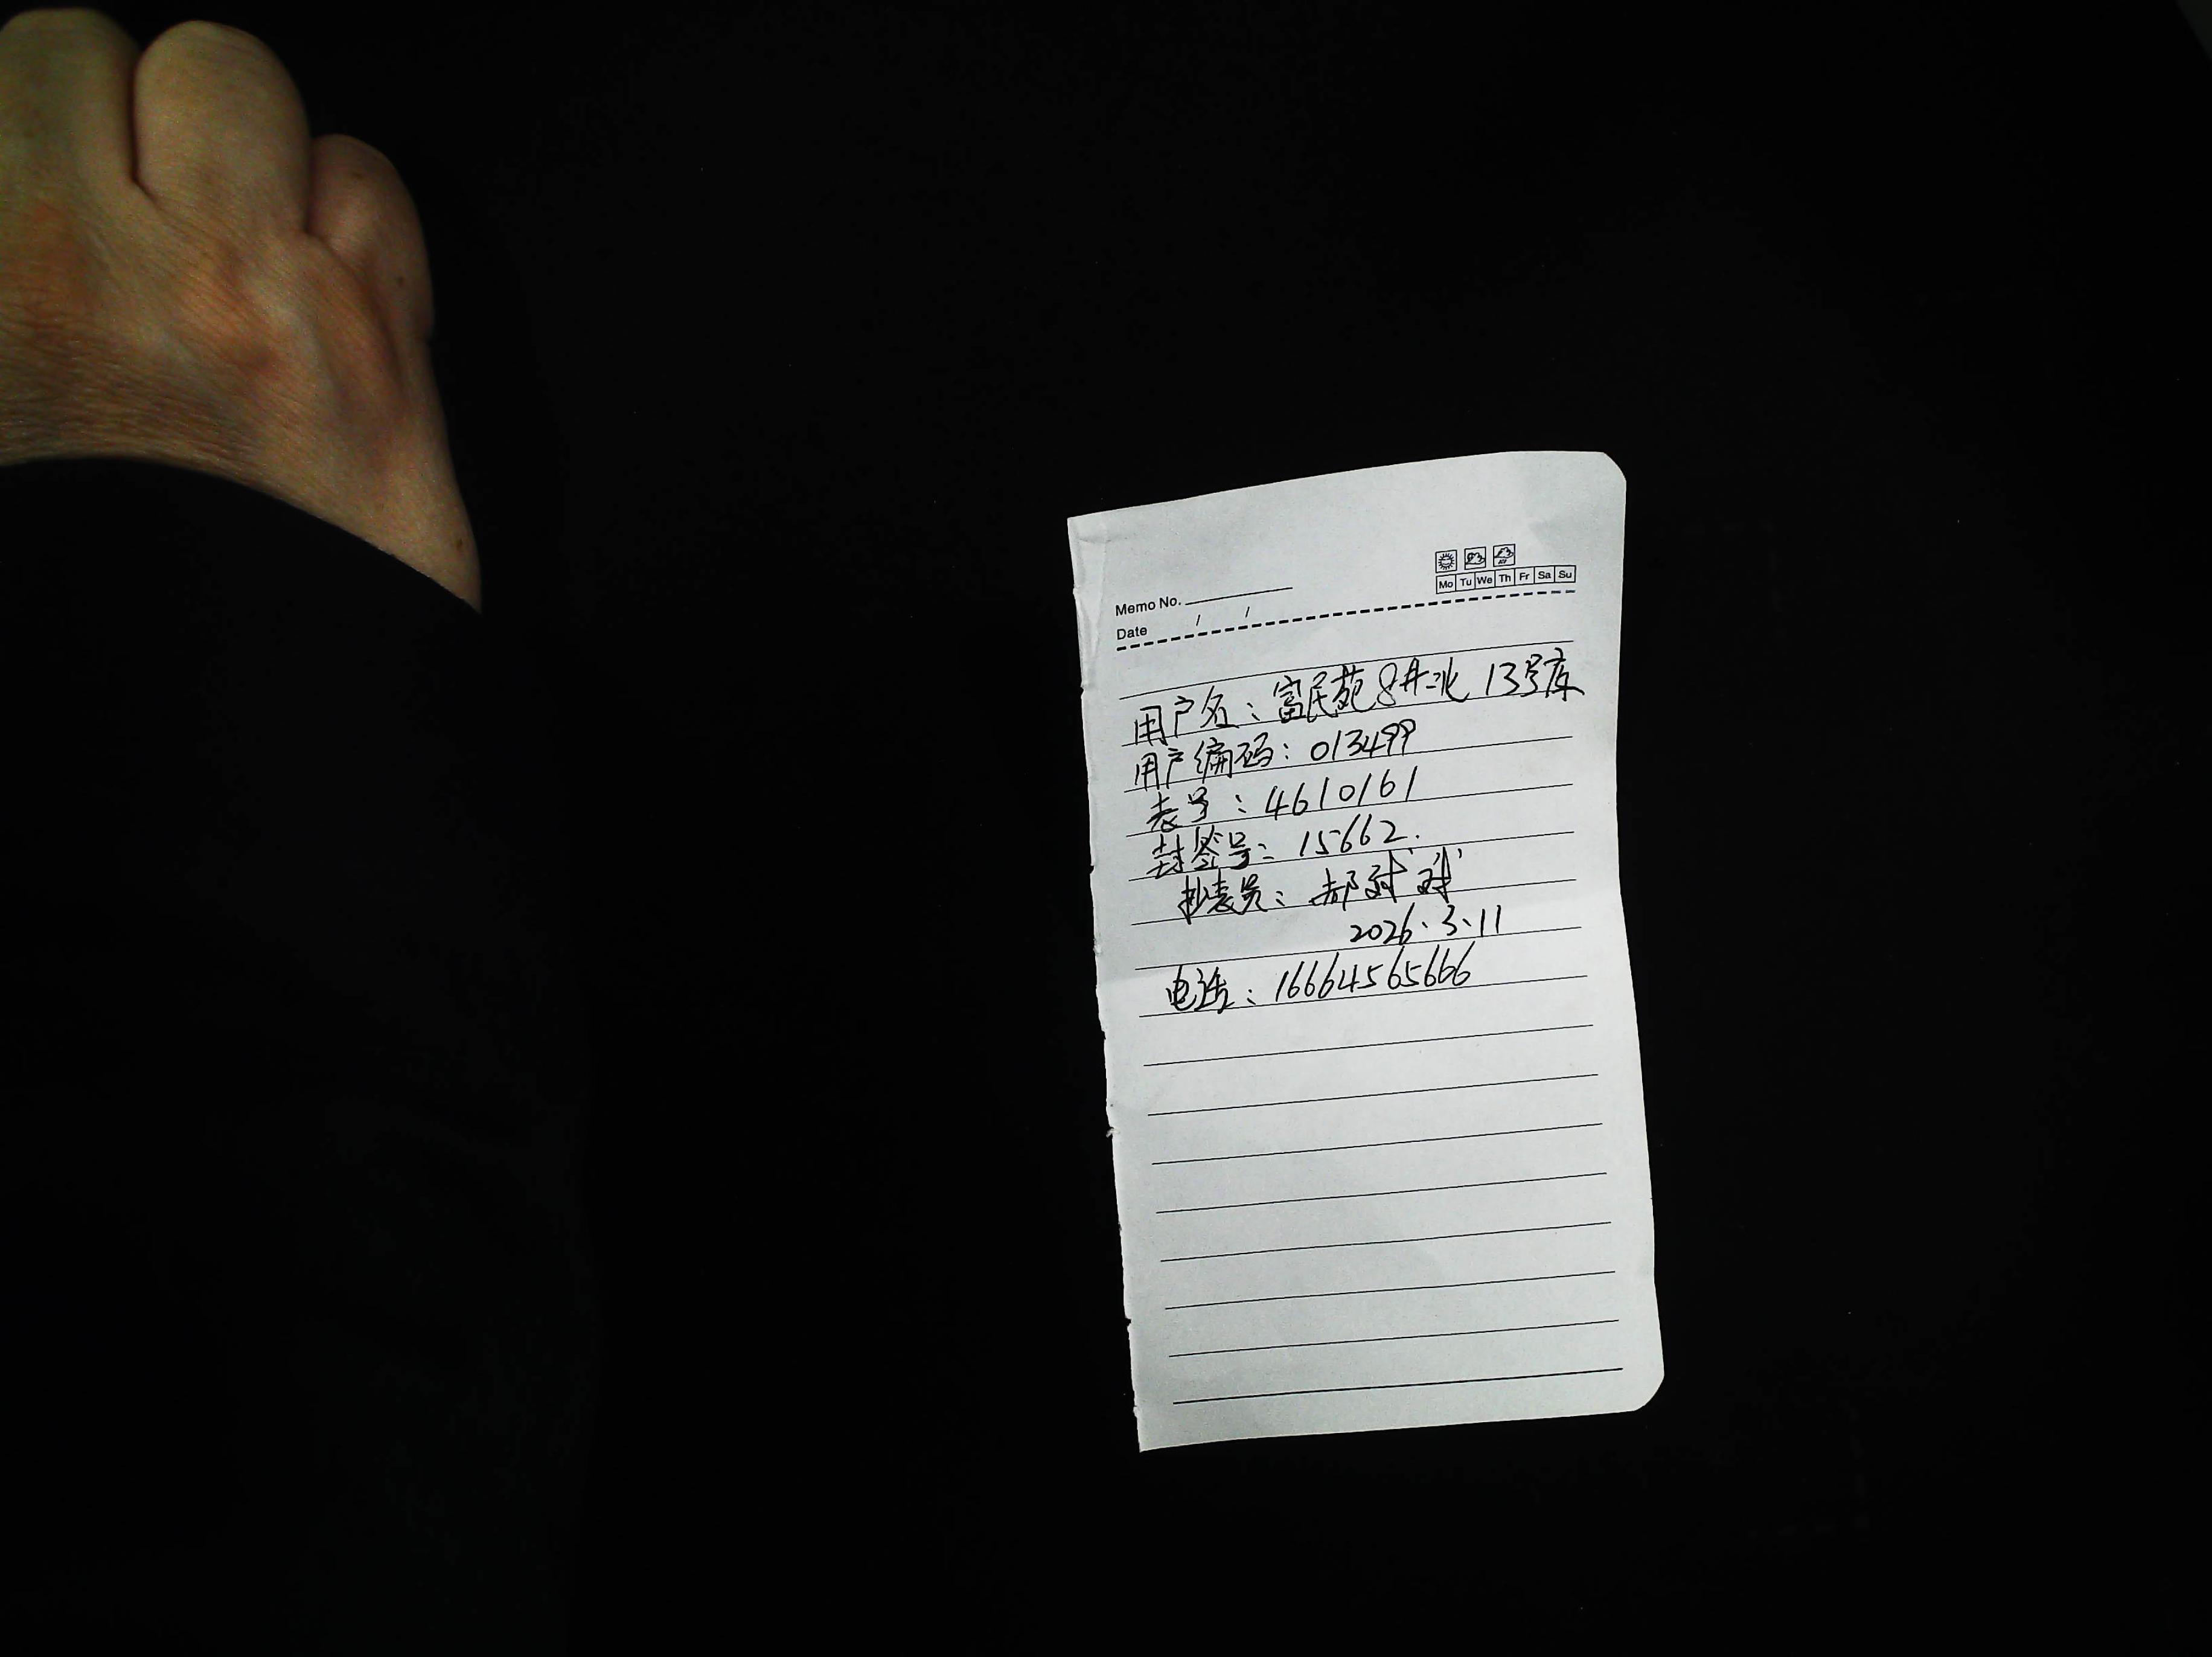 Mo Tu We Th Fr Sa Su
Memo No.
Date / /
用户名：富民苑8井北 13号库
用户编码：013499
表号：4610161
封签号：15662.
抄表员：郝
2026.3.11
电话：16664565666